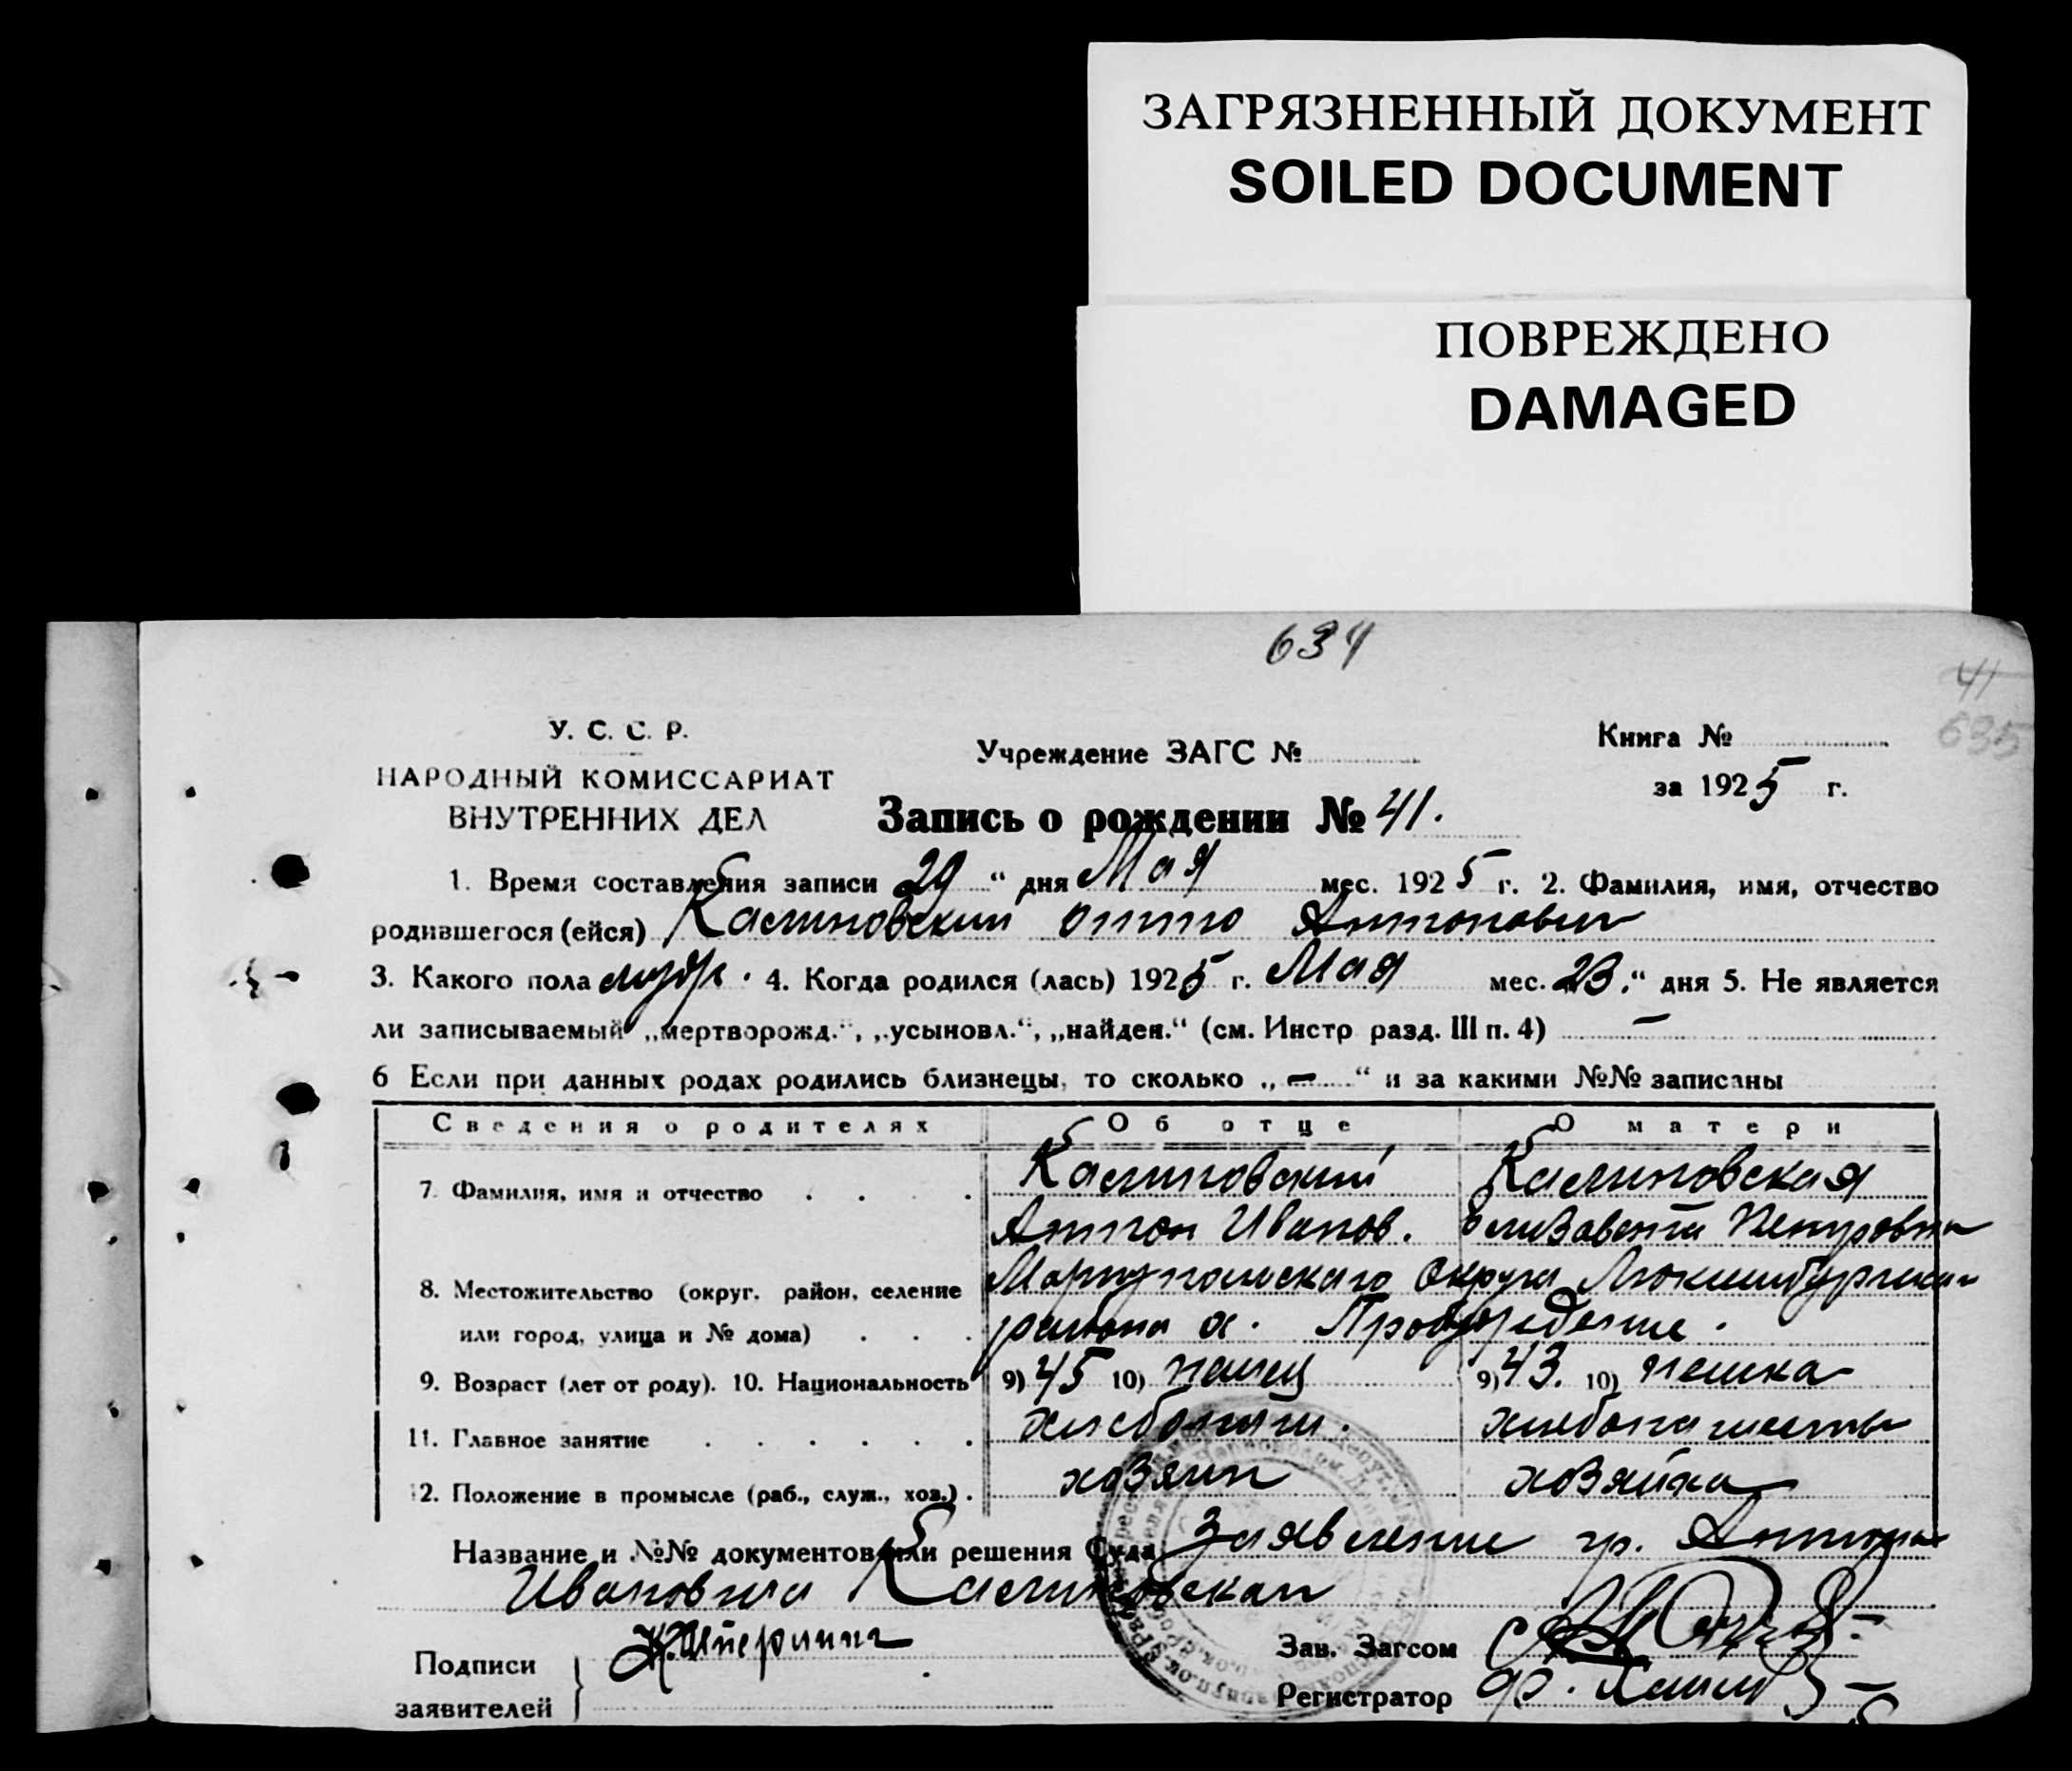 ЗАГРЯЗНЕННЫЙ ДОКУМЕНТ
SOILED DOCUMENT
ПОВРЕЖДЕНО
DAMAGED
634
41
635
У. С. С. Р.
НАРОДНЫЙ КОМИССАРИАТ
ВНУТРЕННИХ ДЕЛ
Учреждение ЗАГС №
Книга №
за 1925 г.
Запись о рождении № 41.
1. Время составления записи 29 “ дня Мая мес. 1925 г. 2. Фамилия, имя, отчество
родившегося (ейся) Калиновский Отто Антонович
3. Какого пола мужск. 4. Когда родился (лась) 1925 г. Мая мес. 23.“ дня 5. Не является
ли записываемый „мертворожд.“, „усыновл.“, „найден.“ (см. Инстр разд. III п. 4) —
6 Если при данных родах родились близнецы, то сколько „ — “ и за какими №№ записаны
Сведения о родителях Об отце О матери
7. Фамилия, имя и отчество Калиновский Калиновская
Антон Иванов. Елизавета Петровна
8. Местожительство (округ, район, селение Мариупольского Округа Люксембургскаго
или город, улица и № дома) района
9. Возраст (лет от роду). 10. Национальность 9) 45 10) немец 9) 43. 10) немка
11. Главное занятие хлебопаш. хлебопашество
12. Положение в промысле (раб., служ., хоз.) хозяин хозяйка
Название и №№ документов или решения Суда Заявление гр. Антона
Ивановича Калиновскаго
Подписи
заявителей
Зав. Загсом
Регистратор